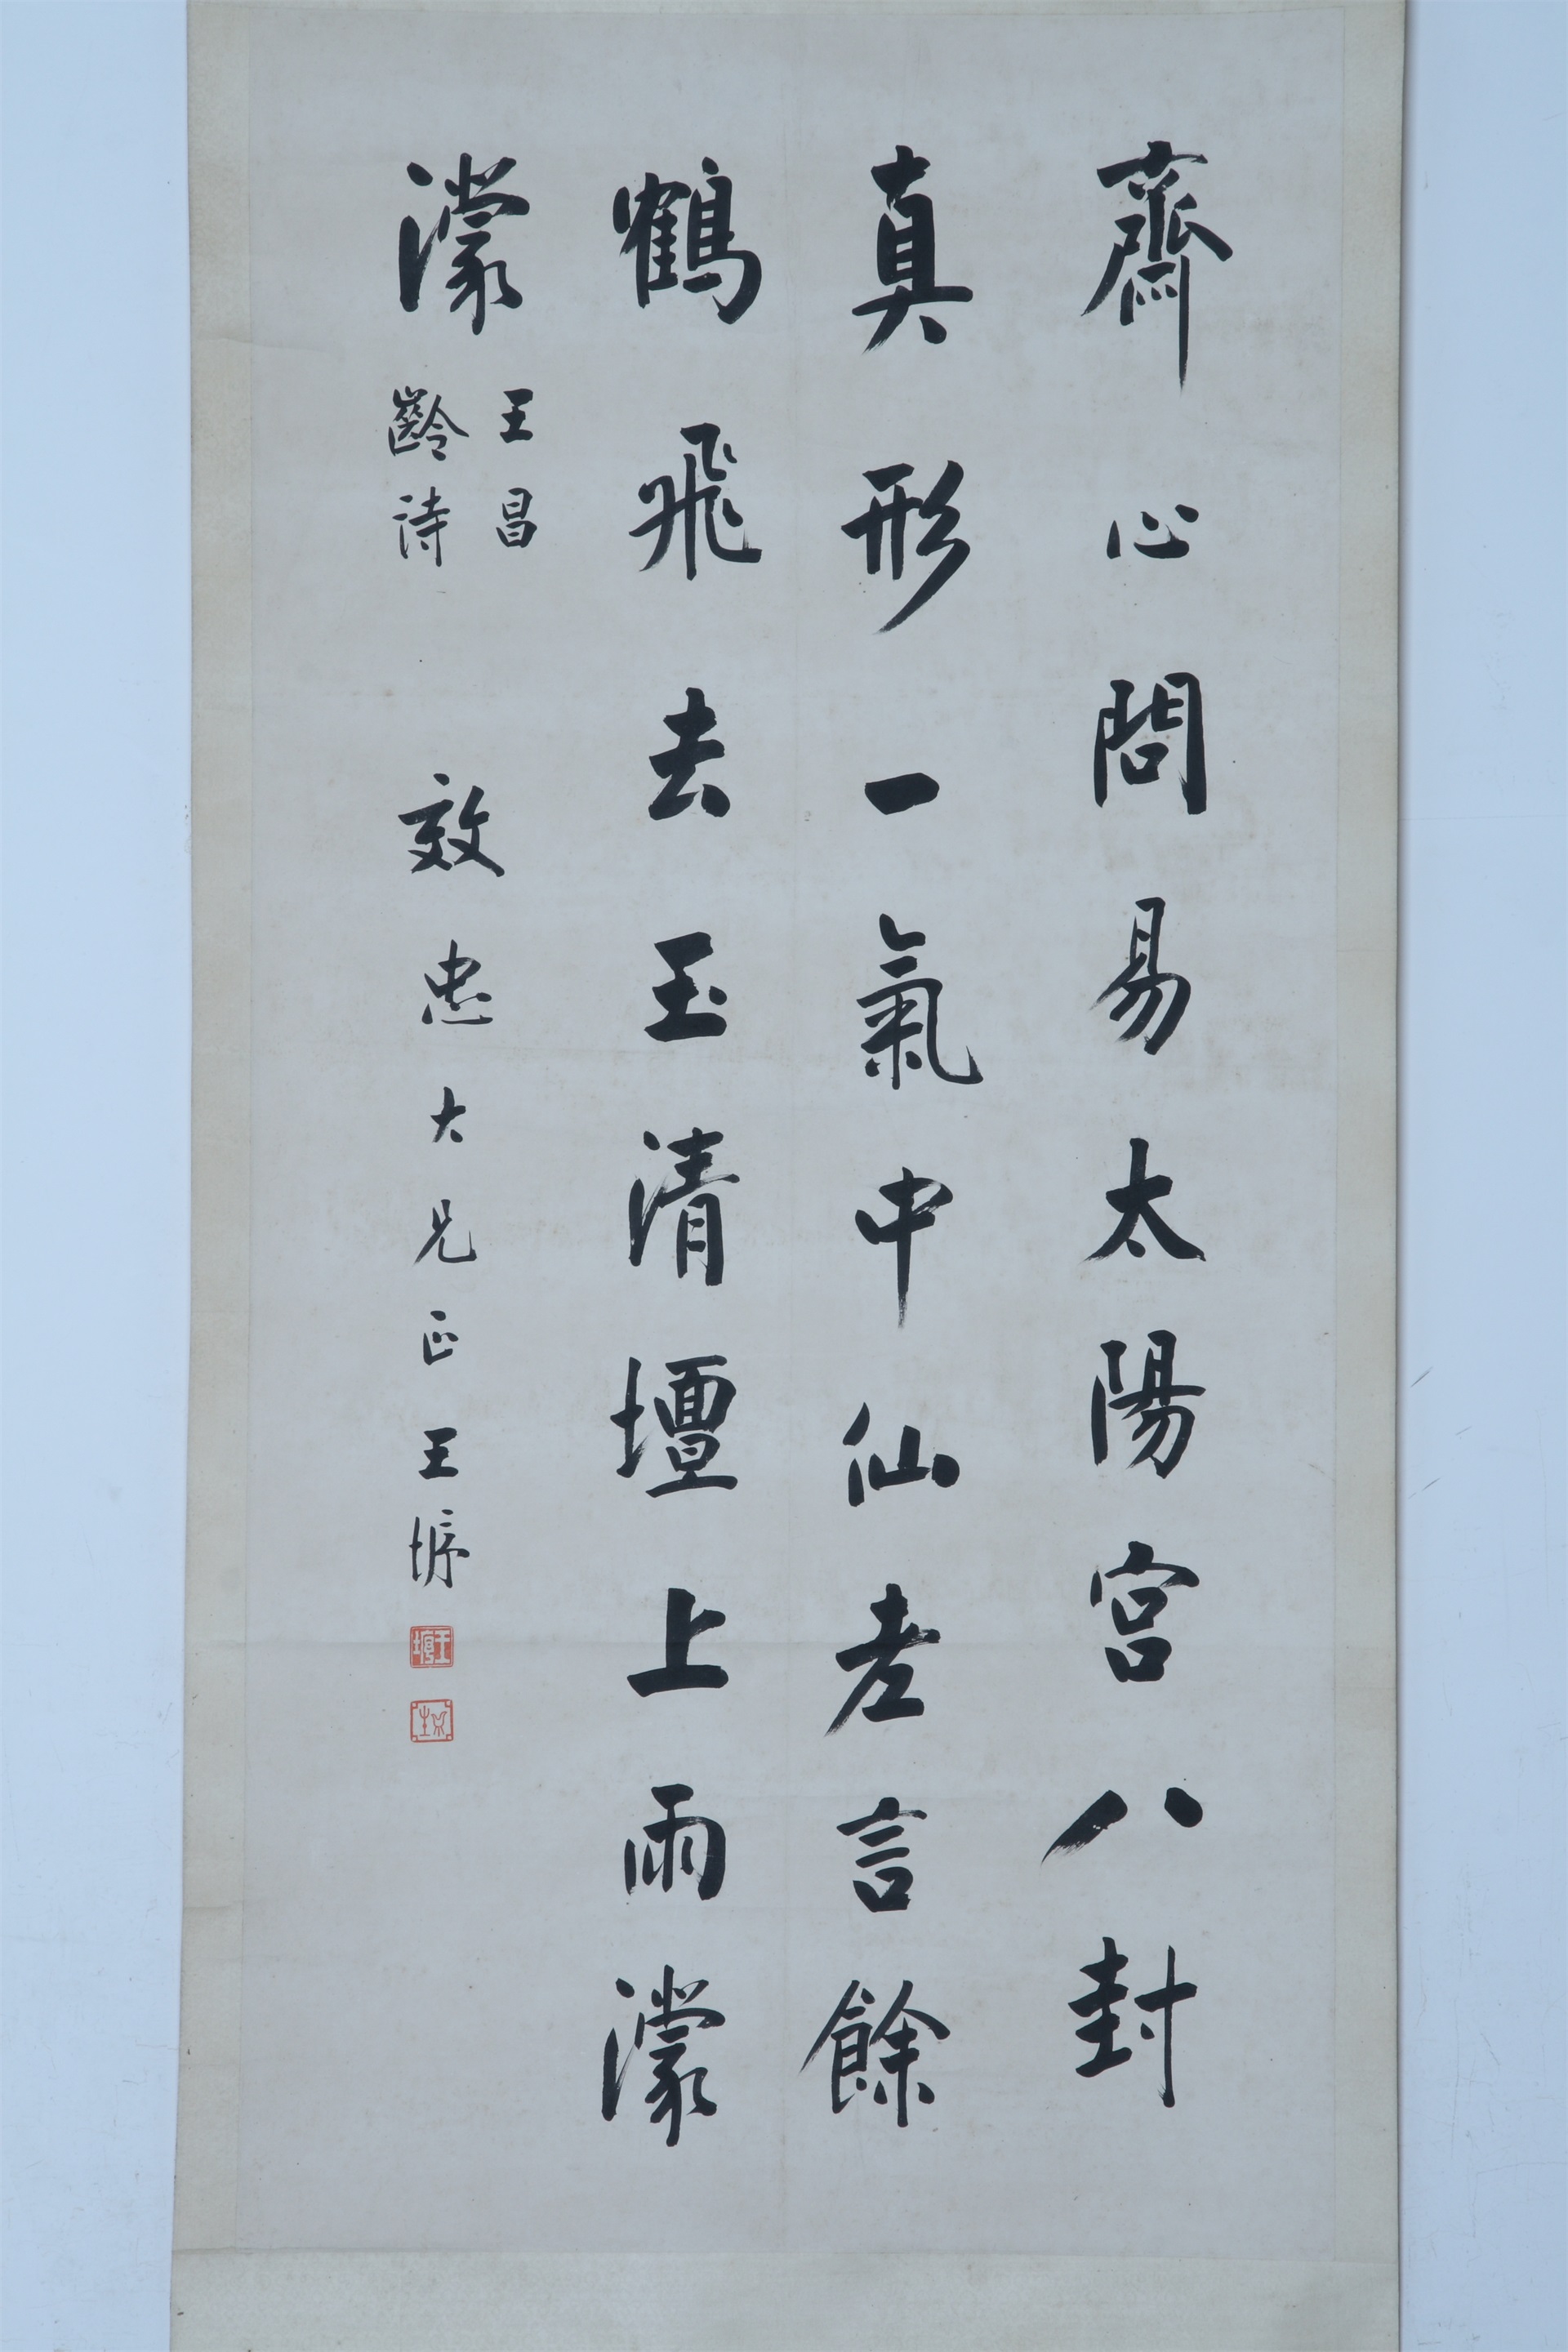 齋心問易太陽宮八封
真形一氣中仙老言餘
鶴飛去玉清壇上雨濛
濛
王昌
齡詩
效忠大兄正王塝